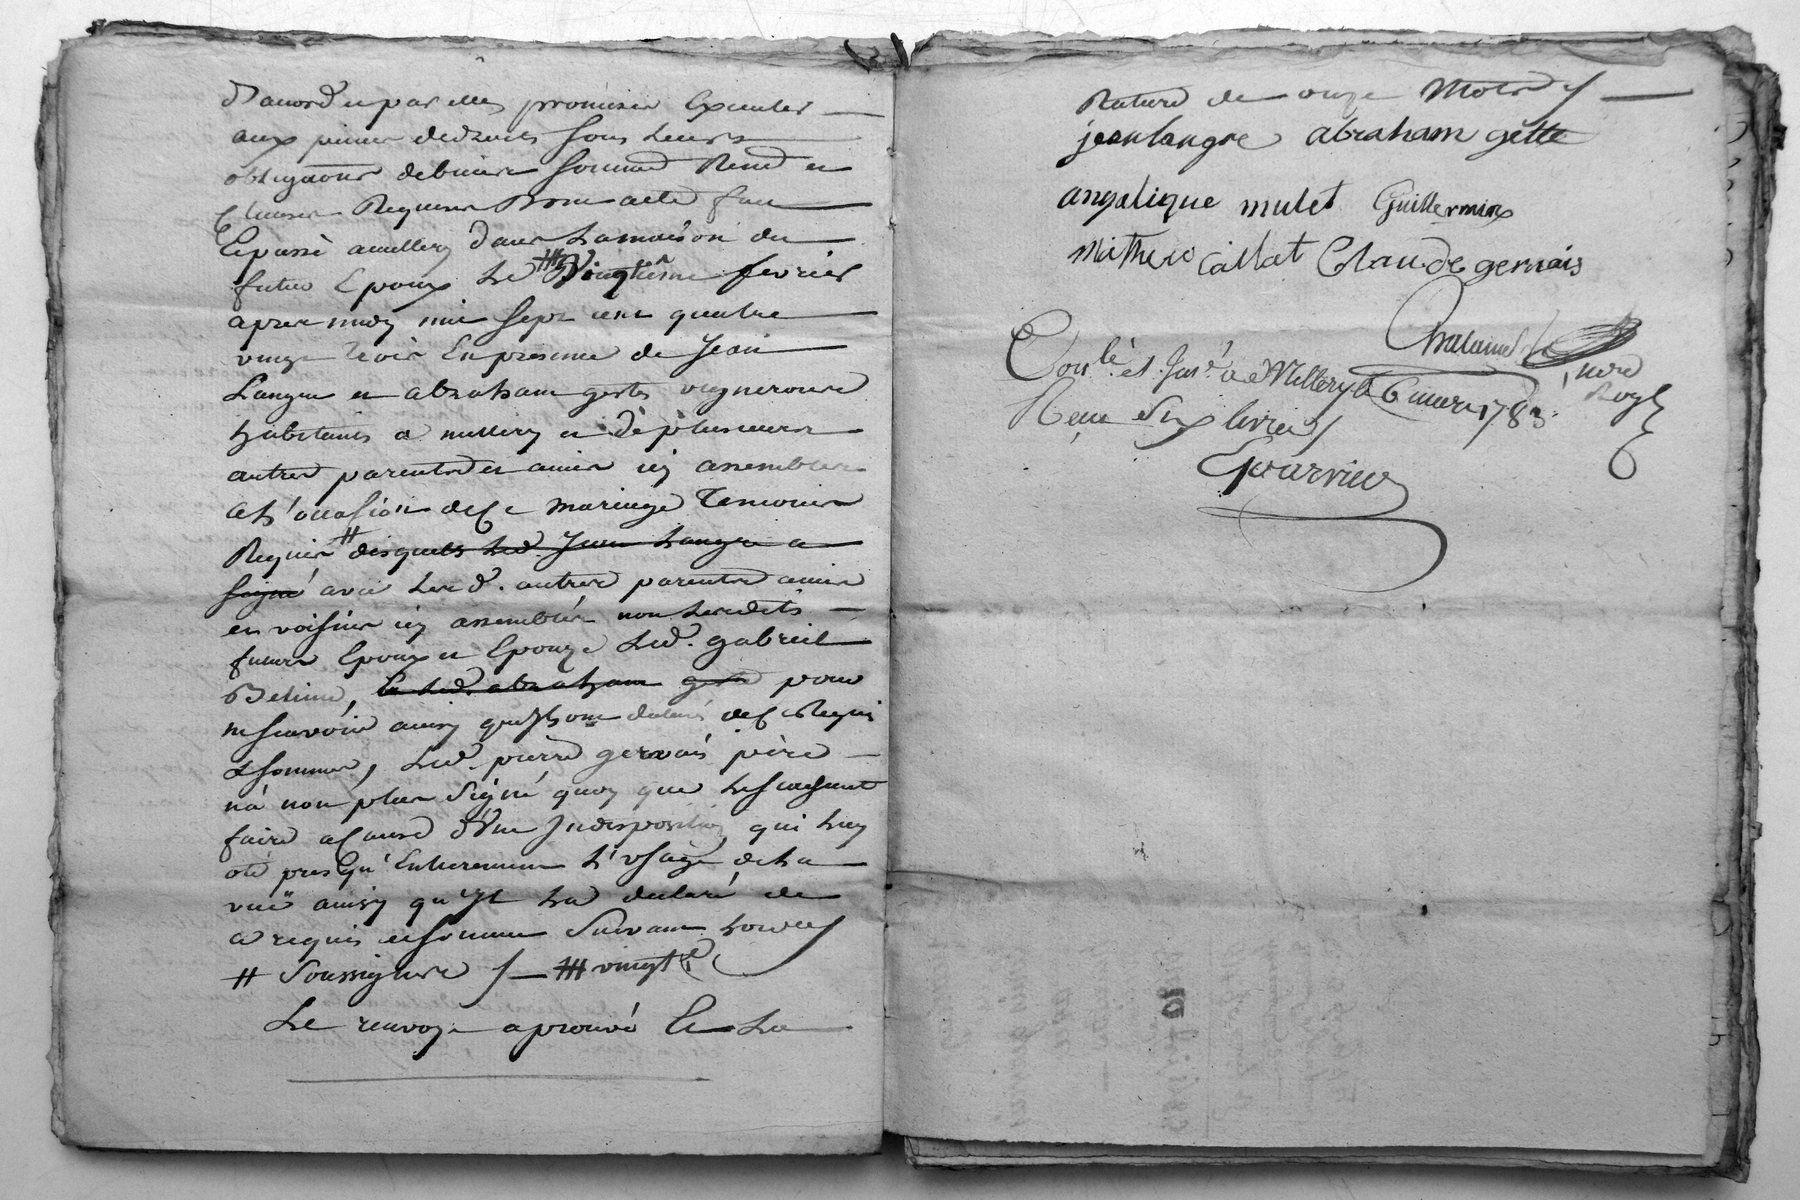 D'acord et par elles promises Executer
aux peines de droit sous leurs
obligations de biens soumis Renon et
Clauses Requises Donc acte fait
Et passé a millery dans La maison du
futur Epoux Le ## Vingtième fevrier
apres midy mil sept cent quatre
vingt trois En presence de Jean
Langre et abraham gette vignerons
habitants a millery et de plusieurs
autres parents et amis icy assemblés
a L'occasion de Ce mariage Temoins
Requis # desquels Led. Jean Langre a
signé avec Lesd. autres parents amis
et voisins icy assemblés non Lesdits
futurs Epoux et Epouze Led. gabriel
Betime, et Led. abraham gette pour
ne scavoir ainsy qu'ils ont declaré de Ce Requis
& sommés, Led. pierre gervais père
n'a non plus signé quoy que Le scachant
faire a Cause d'Une Indisposition qui Luy
ote presqu'Entierement L'usage de La
vuë ainsy qu'il L'a declaré de
ce requis et sommé suivant L'ordce
# Soussignés /— ## vingt e
Le renvoye aprouvé Et La
Rature de onze Mots
jean langre abraham gette
angelique mulet Guillermin
Mathieu Callat Claude gervais
Chalamel
nore
Royl
Conlé. et Insé. a Millery le 6 mars 1783.
Reçu Six livres
Evarnier